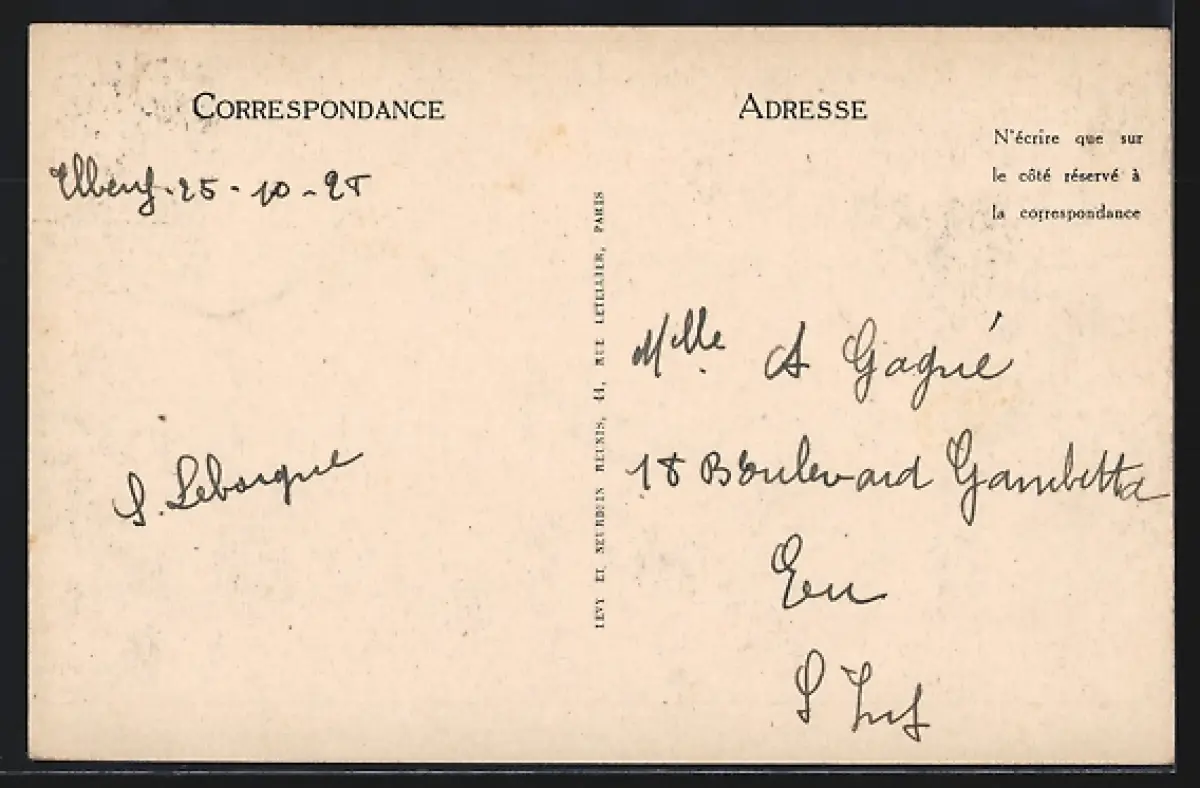 CORRESPONDANCE
Elbeuf. 25-10-28
S. Leborgne
LEVY ET NEURDEIN REUNIS, 44, RUE LETELLIER, PARIS
ADRESSE
N'écrire que sur
le côté réservé à
la correspondance
Mlle. A Gagné
18 Boulevard Gambetta
Eu
S Inf